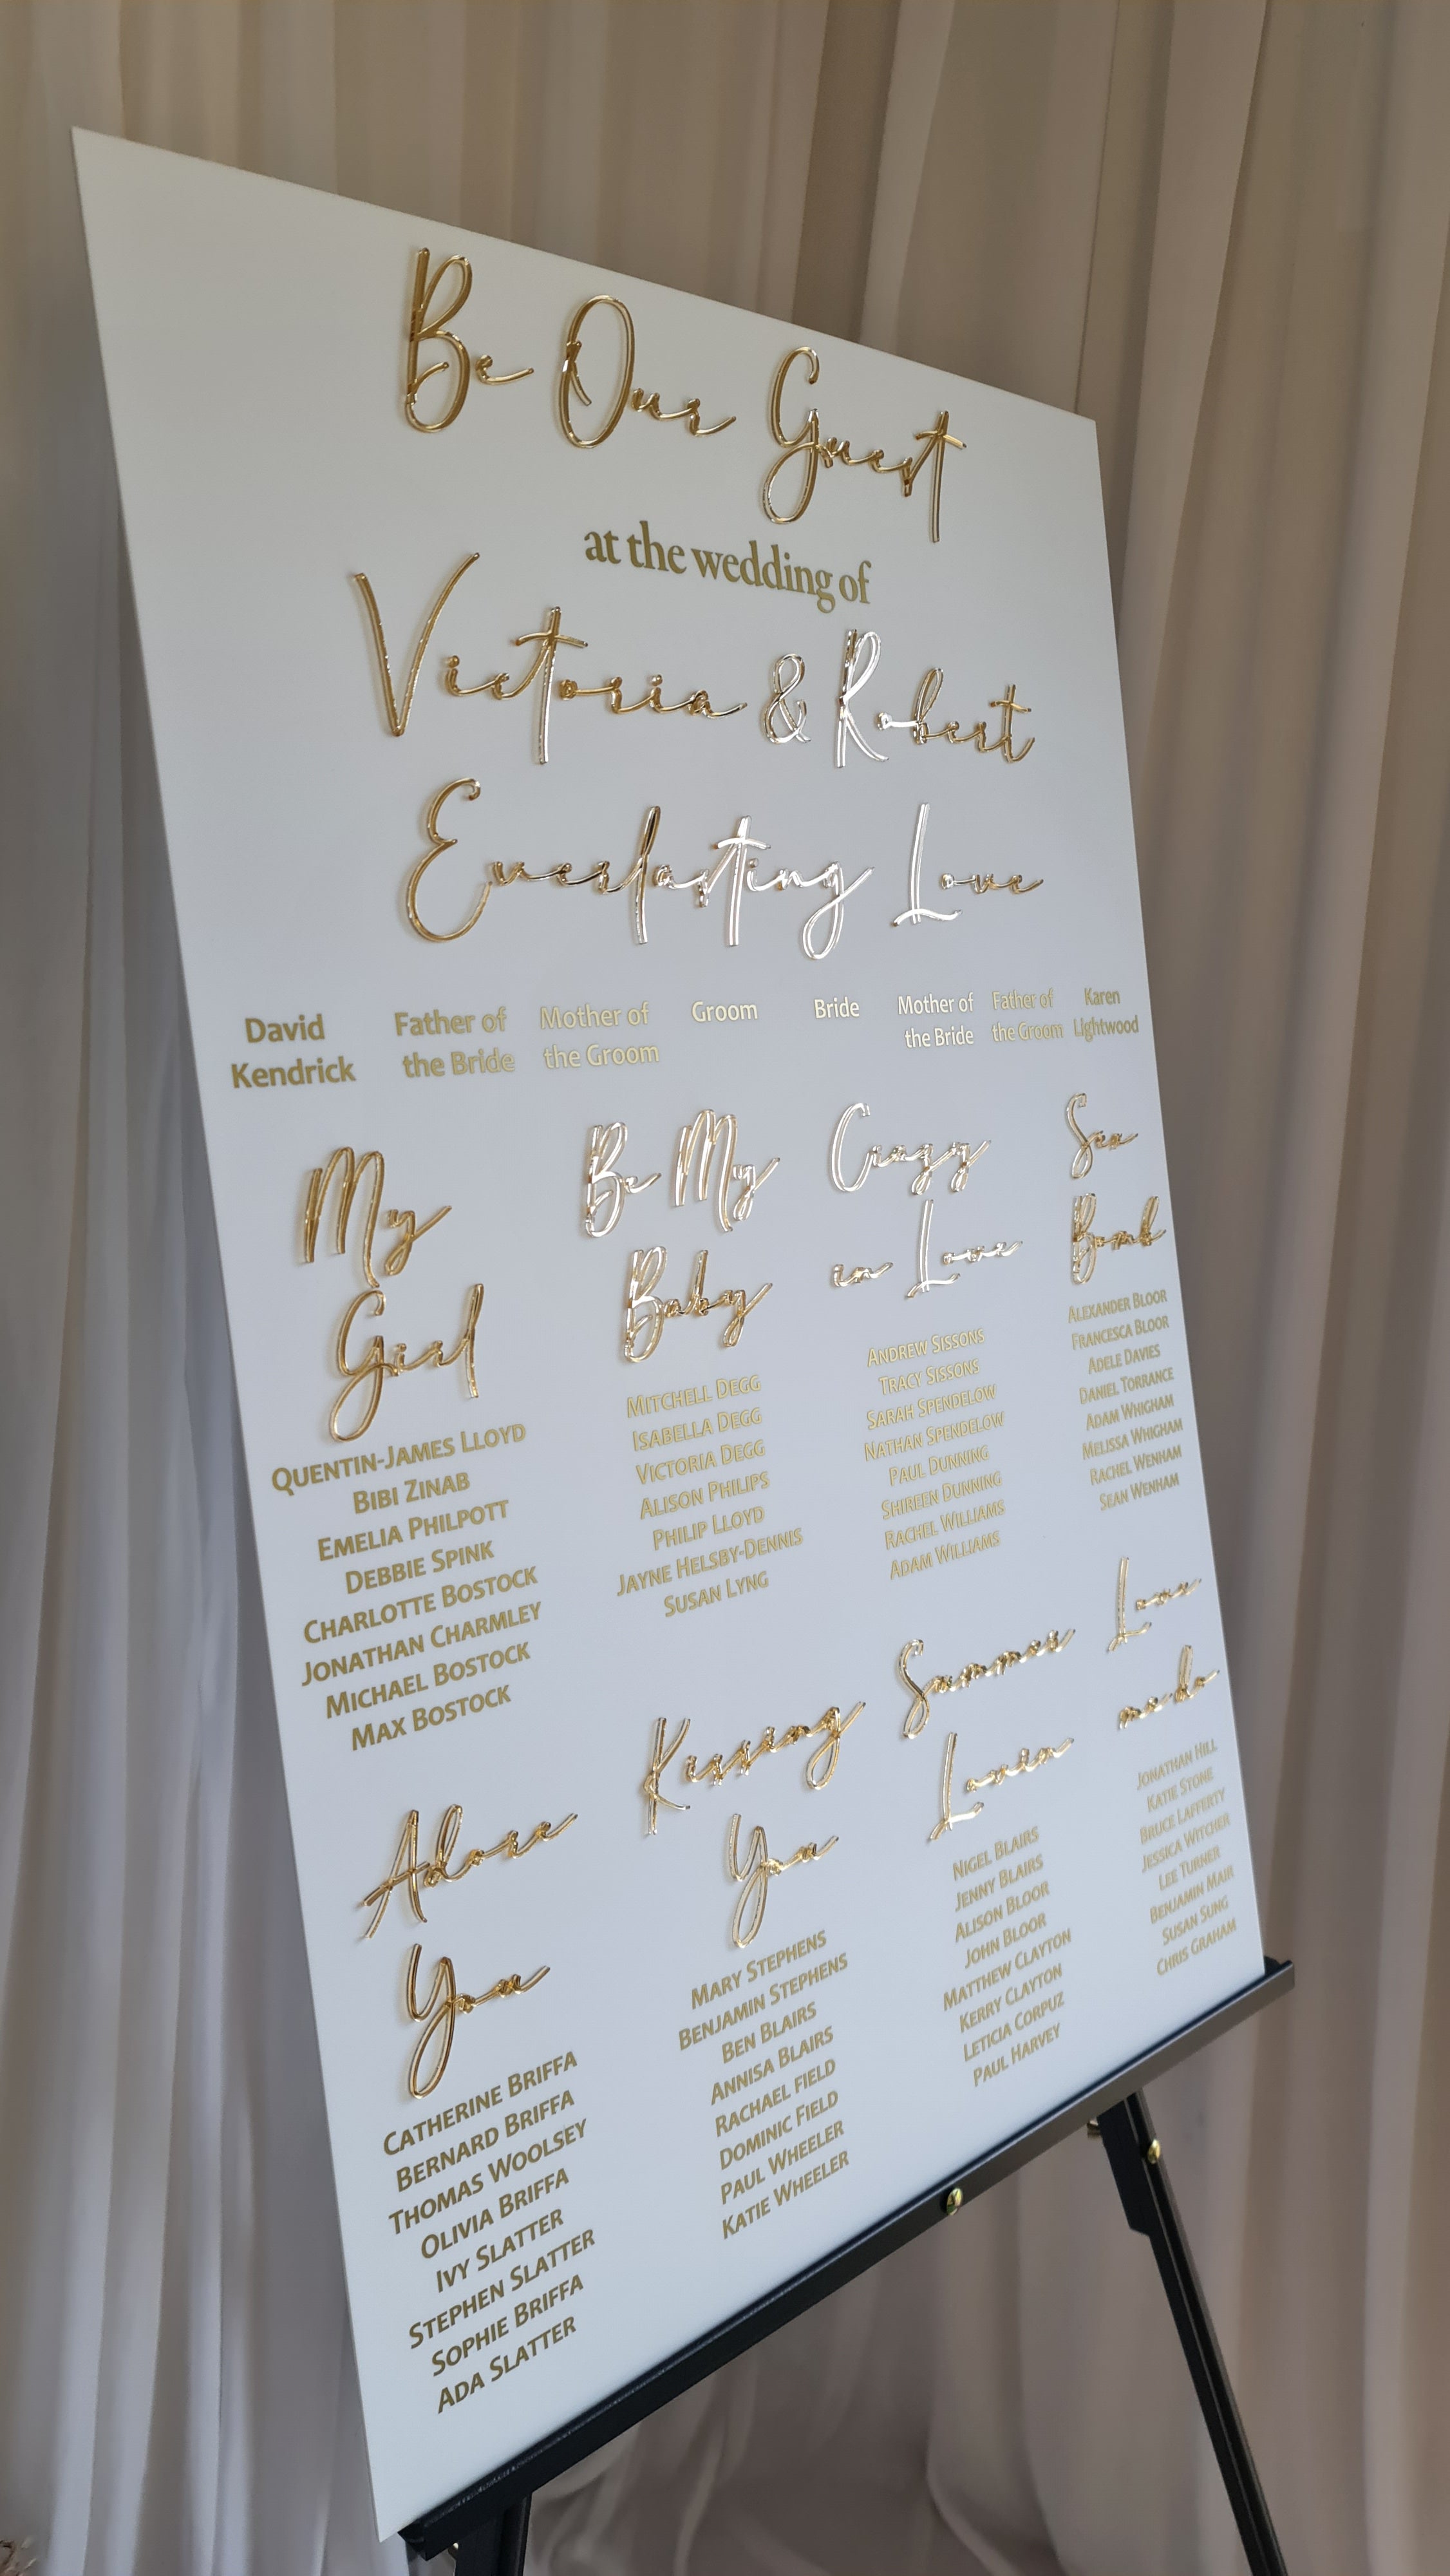 Be Our Guest
at the wedding of
Victoria & Robert
Everlasting Love
David
Kendrick
Father of
the Bride
Mother of
the Groom
Groom
Bride
Mother of
the Bride
Father of
the Groom
Karen
Lightwood
My
Girl
QUENTIN-JAMES LLOYD
BIBI ZINAB
EMELIA PHILPOTT
DEBBIE SPINK
CHARLOTTE BOSTOCK
JONATHAN CHARMLEY
MICHAEL BOSTOCK
MAX BOSTOCK
Be My
Baby
MITCHELL DEGG
ISABELLA DEGG
VICTORIA DEGG
ALISON PHILIPS
PHILIP LLOYD
JAYNE HELSBY-DENNIS
SUSAN LYNG
Crazy
in Love
ANDREW SISSONS
TRACY SISSONS
SARAH SPENDELOW
NATHAN SPENDELOW
PAUL DUNNING
SHIREEN DUNNING
RACHEL WILLIAMS
ADAM WILLIAMS
Sex
Bomb
ALEXANDER BLOOR
FRANCESCA BLOOR
ADELE DAVIES
DANIEL TORRANCE
ADAM WHIGHAM
MELISSA WHIGHAM
RACHEL WENHAM
SEAN WENHAM
Adore
You
CATHERINE BRIFFA
BERNARD BRIFFA
THOMAS WOOLSEY
OLIVIA BRIFFA
IVY SLATTER
STEPHEN SLATTER
SOPHIE BRIFFA
ADA SLATTER
Kissing
You
MARY STEPHENS
BENJAMIN STEPHENS
BEN BLAIRS
ANNISA BLAIRS
RACHAEL FIELD
DOMINIC FIELD
PAUL WHEELER
KATIE WHEELER
Summer
Lovin
NIGEL BLAIRS
JENNY BLAIRS
ALISON BLOOR
JOHN BLOOR
MATTHEW CLAYTON
KERRY CLAYTON
LETICIA CORPUZ
PAUL HARVEY
Love
me do
JONATHAN HILL
KATIE STONE
BRUCE LAFFERTY
JESSICA WITCHER
LEE TURNER
BENJAMIN MAIR
SUSAN SUNG
CHRIS GRAHAM